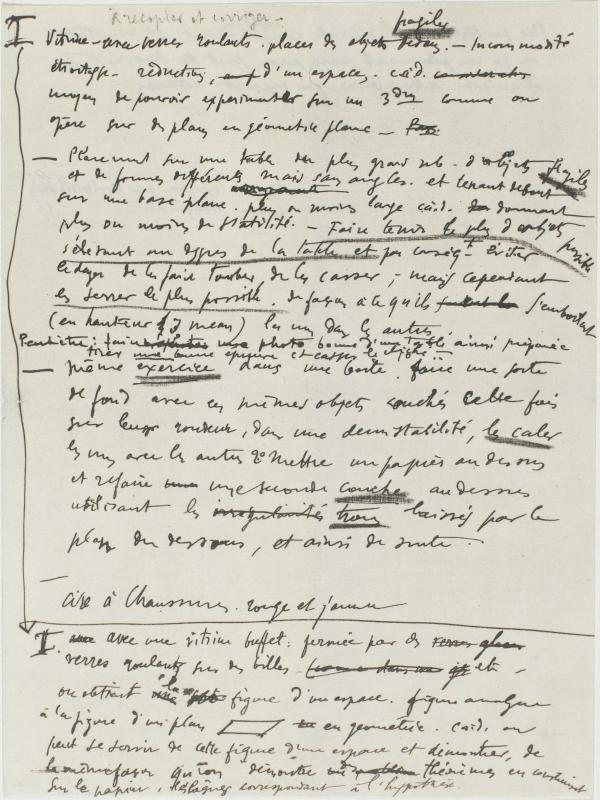 à recopier et corriger -
I Vitrine - avec verres roulants. placer des objets fragiles dedans. - Incommodité
étroitesse - réduction, d'un espace, c.à.d.
moyen de pouvoir expérimenter sur un 3 dim comme on
opère sur des plans en géométrie plane -
- Placement sur une table du plus grand nb. d'objets fragiles
et de formes différentes mais sans angles. et tenant debout
sur une base plane. plus ou moins large c.à.d. donnant
plus ou moins de stabilité. - Faire tenir le plus d'objets possible
sur la table et par conséqt éviter
le danger de les faire tomber, de les casser; mais cependant
les serrer le plus possible. de façon à ce qu'ils s'emboitent
(en hauteur) les uns dans les autres.
Peut être: faire une photo bonne d'une table ainsi préparée
tirer une bonne épreuve et casser le cliché
- même exercice dans une boite. faire une sorte
de fond avec ces mêmes objets couchés cette fois
sur leur rondeur, dans une demi stabilité, les caler
les uns avec les autres 2° mettre un papier au dessus
et refaire une seconde couche au dessus
utilisant les irrégularités trous laissés par le
du dessous, et ainsi de suite.
- cire à chaussures. rouge et jaune
II. avec une vitrine buffet: fermée par des verres
verres roulants sur des billes - etc -
on obtient la figure d'un espace. figure analogue
à la figure d'un plan en géométrie. c.à.d. on
peut se servir de cette figure d'un espace et démontrer, de
la même façon qu'on démontre théorèmes en construisant
sur le papier, correspondant à l'hypothèse.